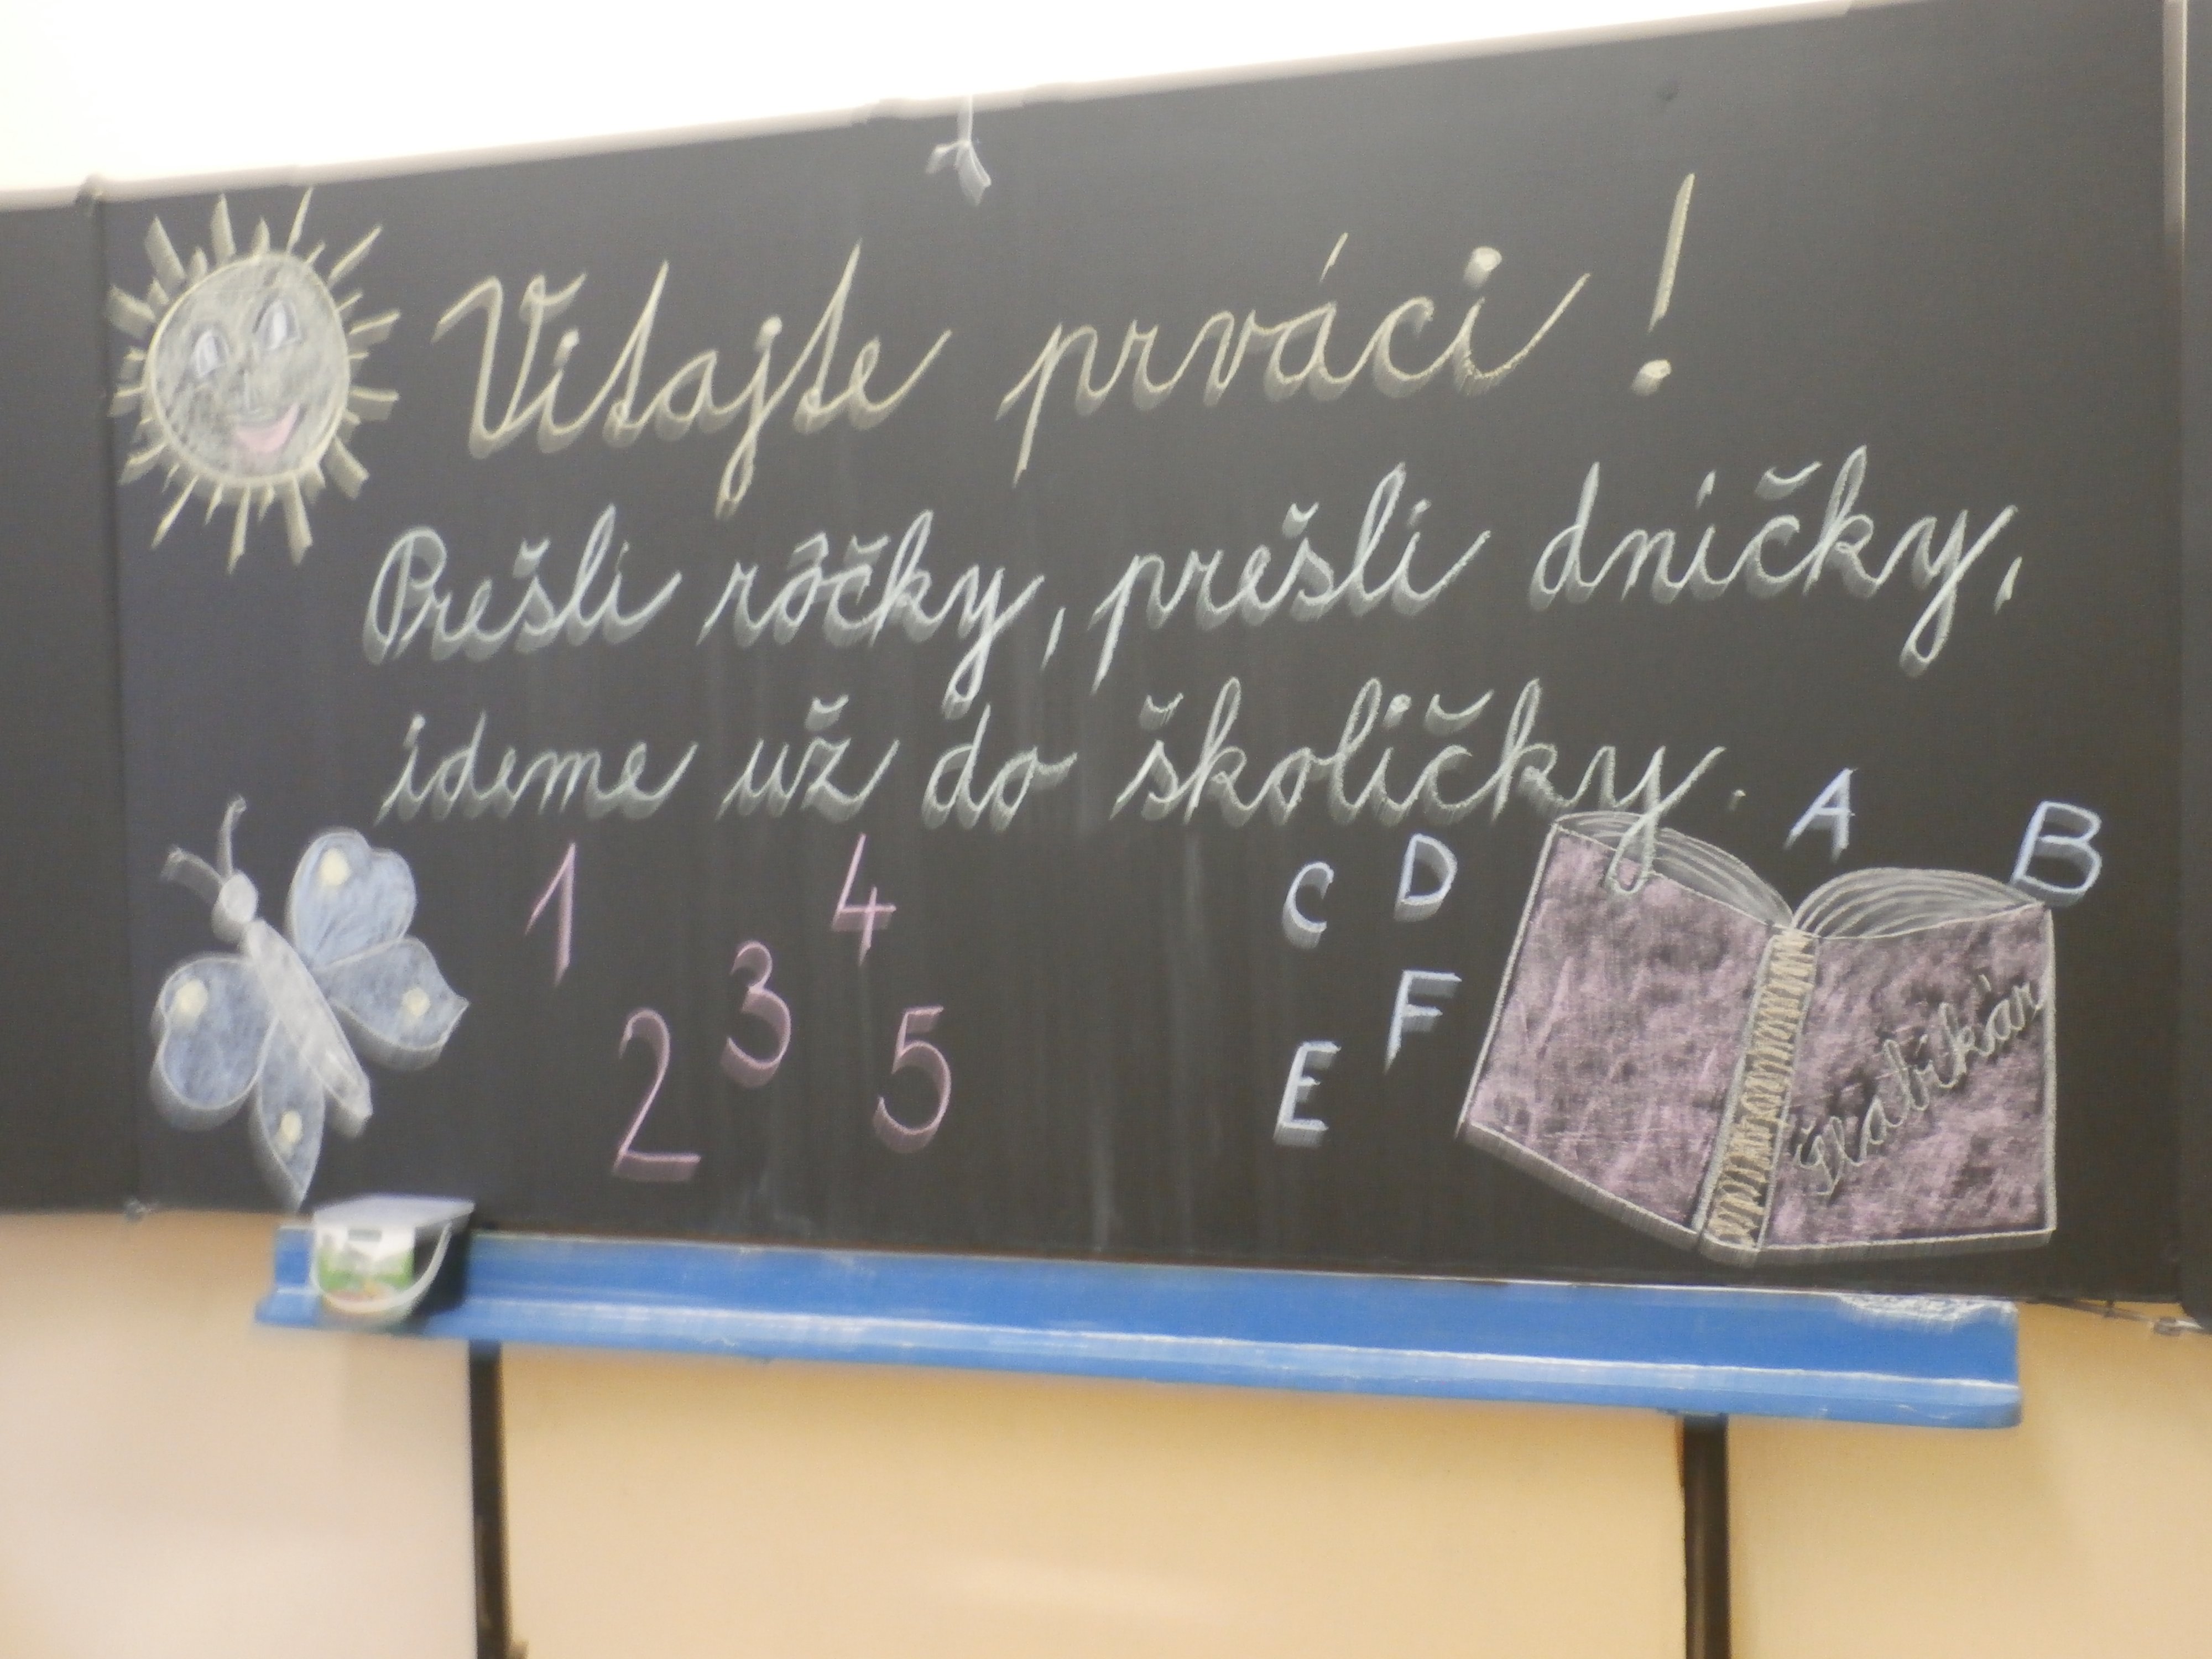 Vitajte prváci!
Prešli rôčky, prešli dničky,
ideme už do školičky.
A B
C D
1 4
2 3 5
E F
Šlabikár